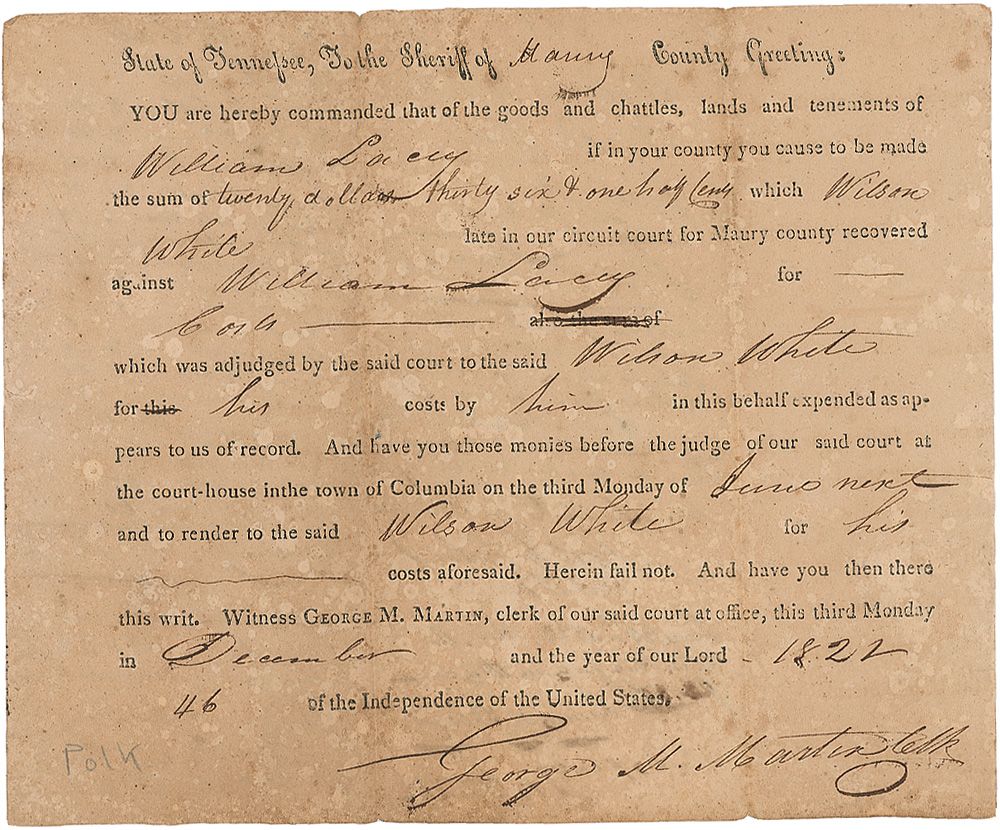 State of Tennessee, To the Sheriff of Maury County Greeting:
YOU are hereby commanded that of the goods and chattles, lands and tenements of
William Lacey if in your county you cause to be made
the sum of twenty dollars thirty six & one half Cents which Wilson
White late in our circuit court for Maury county recovered
against William Lacey for —
Costs — also the sum of
which was adjudged by the said court to the said Wilson White
for this his costs by him in this behalf expended as ap-
pears to us of record. And have you those monies before the judge of our said court at
the court-house inthe town of Columbia on the third Monday of June next
and to render to the said Wilson White for his
costs aforesaid. Herein fail not. And have you then there
this writ. Witness GEORGE M. MARTIN, clerk of our said court at office, this third Monday
in December and the year of our Lord 1822
46 of the Independence of the United States.
George M. Martin Clk
Polk